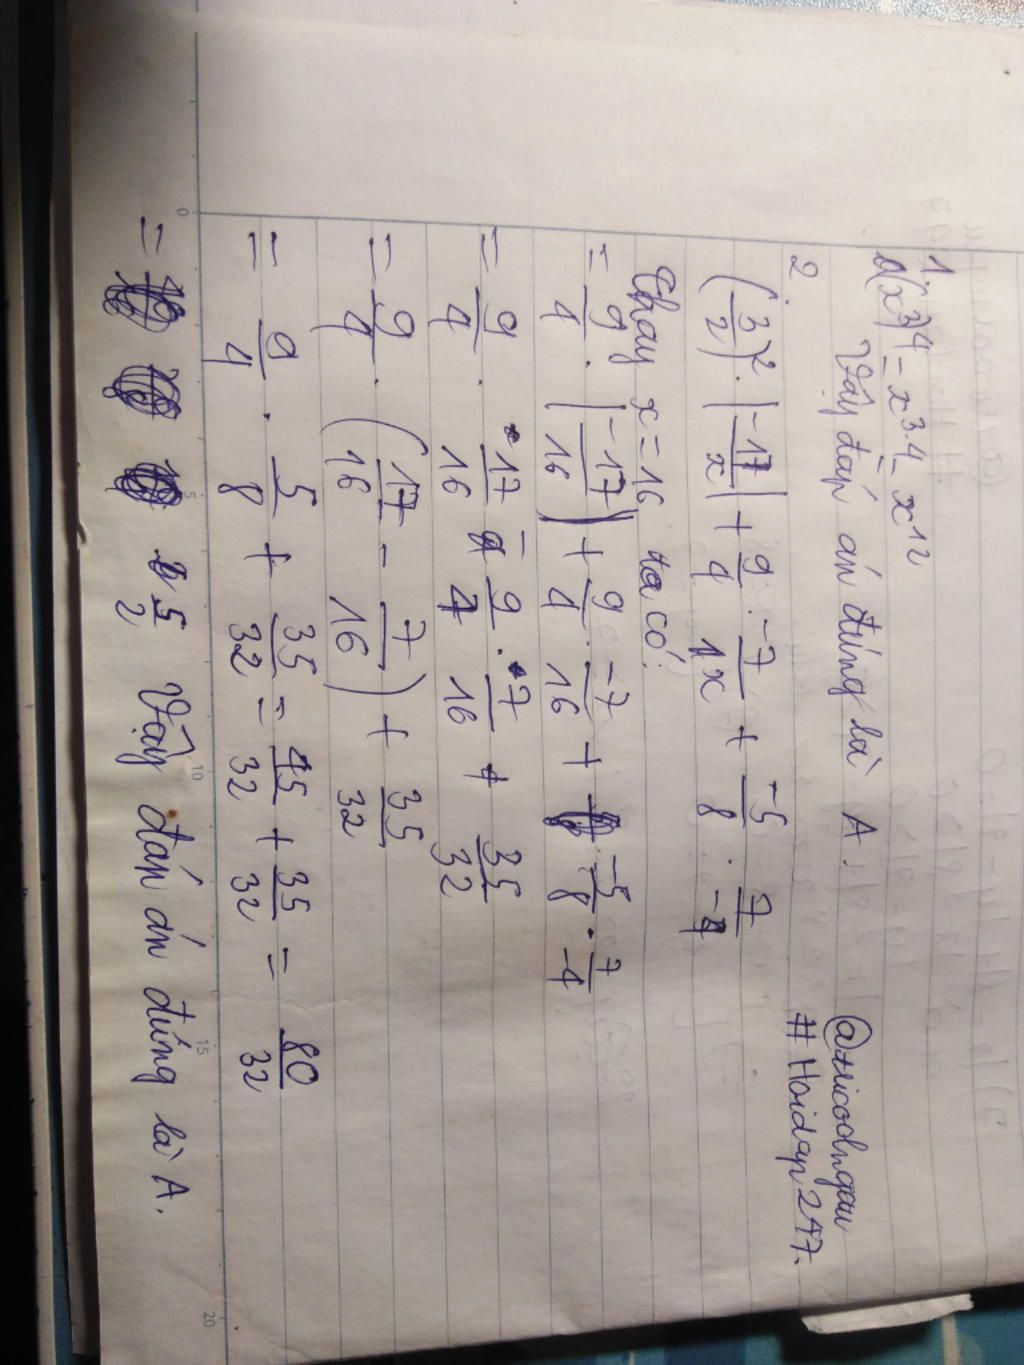 1.
a(x^3)^4 = x^{3.4} = x^{12}
Vậy đáp án đúng là A.
@tricodngau
# Hoidap247.
2.
(3/2)^2 . |-17/x| + 9/4 . -7/x + -5/8 . 7/-4
Thay x = 16 ta có:
= 9/4 . |-17/16| + 9/4 . -7/16 + -5/8 . 7/-4
= 9/4 . 17/16 - 9/4 . 7/16 + 35/32
= 9/4 . (17/16 - 7/16) + 35/32
= 9/4 . 5/8 + 35/32 = 45/32 + 35/32 = 80/32
= 5/2 Vậy đán án đúng là A.